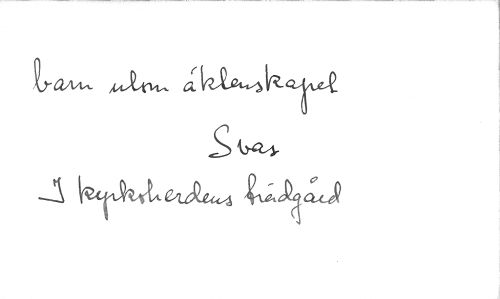 barn utom äktenskapet
Svar
I kyrkoherdens trädgård